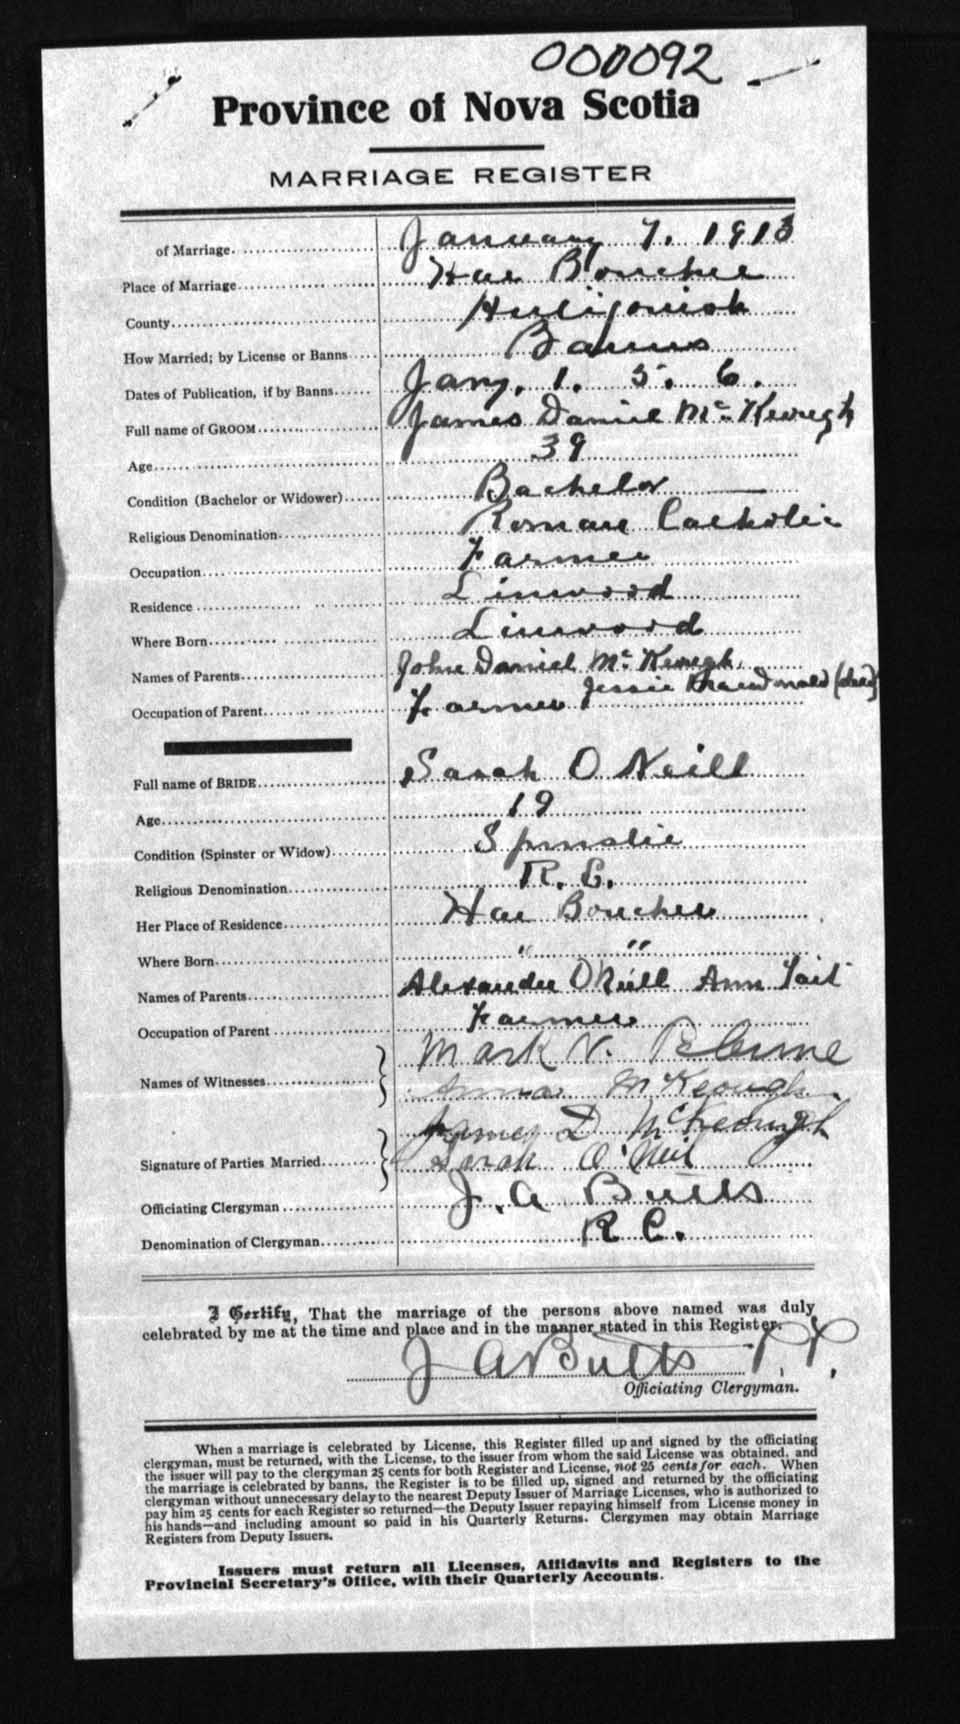 000092
Province of Nova Scotia
MARRIAGE REGISTER
of Marriage January 7. 1913
Place of Marriage Har Bouchee
County Antigonish
How Married; by License or Banns Banns
Dates of Publication, if by Banns Jany. 1. 5. 6.
Full name of GROOM James Daniel Mc Keough
Age 39
Condition (Bachelor or Widower) Bachelor
Religious Denomination Roman Catholic
Occupation Farmer
Residence Linwood
Where Born Linwood
Names of Parents John Daniel Mc Keough
Jessie MacDonald (dead)
Occupation of Parent Farmer
Full name of BRIDE Sarah O Neill
Age 19
Condition (Spinster or Widow) Spinster
Religious Denomination R. C.
Her Place of Residence Har Bouchee
Where Born " "
Names of Parents Alexander O Neill Ann Tait
Occupation of Parent Farmer
Names of Witnesses Mark V.
Anna McKeough
James D McKeough
Signature of Parties Married Sarah O'Neil
Officiating Clergyman J. A Butts
Denomination of Clergyman R C.
I Certify, That the marriage of the persons above named was duly
celebrated by me at the time and place and in the manner stated in this Register.
J A Butts P. P.
Officiating Clergyman.
When a marriage is celebrated by License, this Register filled up and signed by the officiating
clergyman, must be returned, with the License, to the issuer from whom the said License was obtained, and
the issuer will pay to the clergyman 25 cents for both Register and License, not 25 cents for each. When
the marriage is celebrated by banns, the Register is to be filled up, signed and returned by the officiating
clergyman without unnecessary delay to the nearest Deputy Issuer of Marriage Licenses, who is authorized to
pay him 25 cents for each Register so returned—the Deputy Issuer repaying himself from License money in
his hands—and including amount so paid in his Quarterly Returns. Clergymen may obtain Marriage
Registers from Deputy Issuers.
Issuers must return all Licenses, Affidavits and Registers to the
Provincial Secretary's Office, with their Quarterly Accounts.